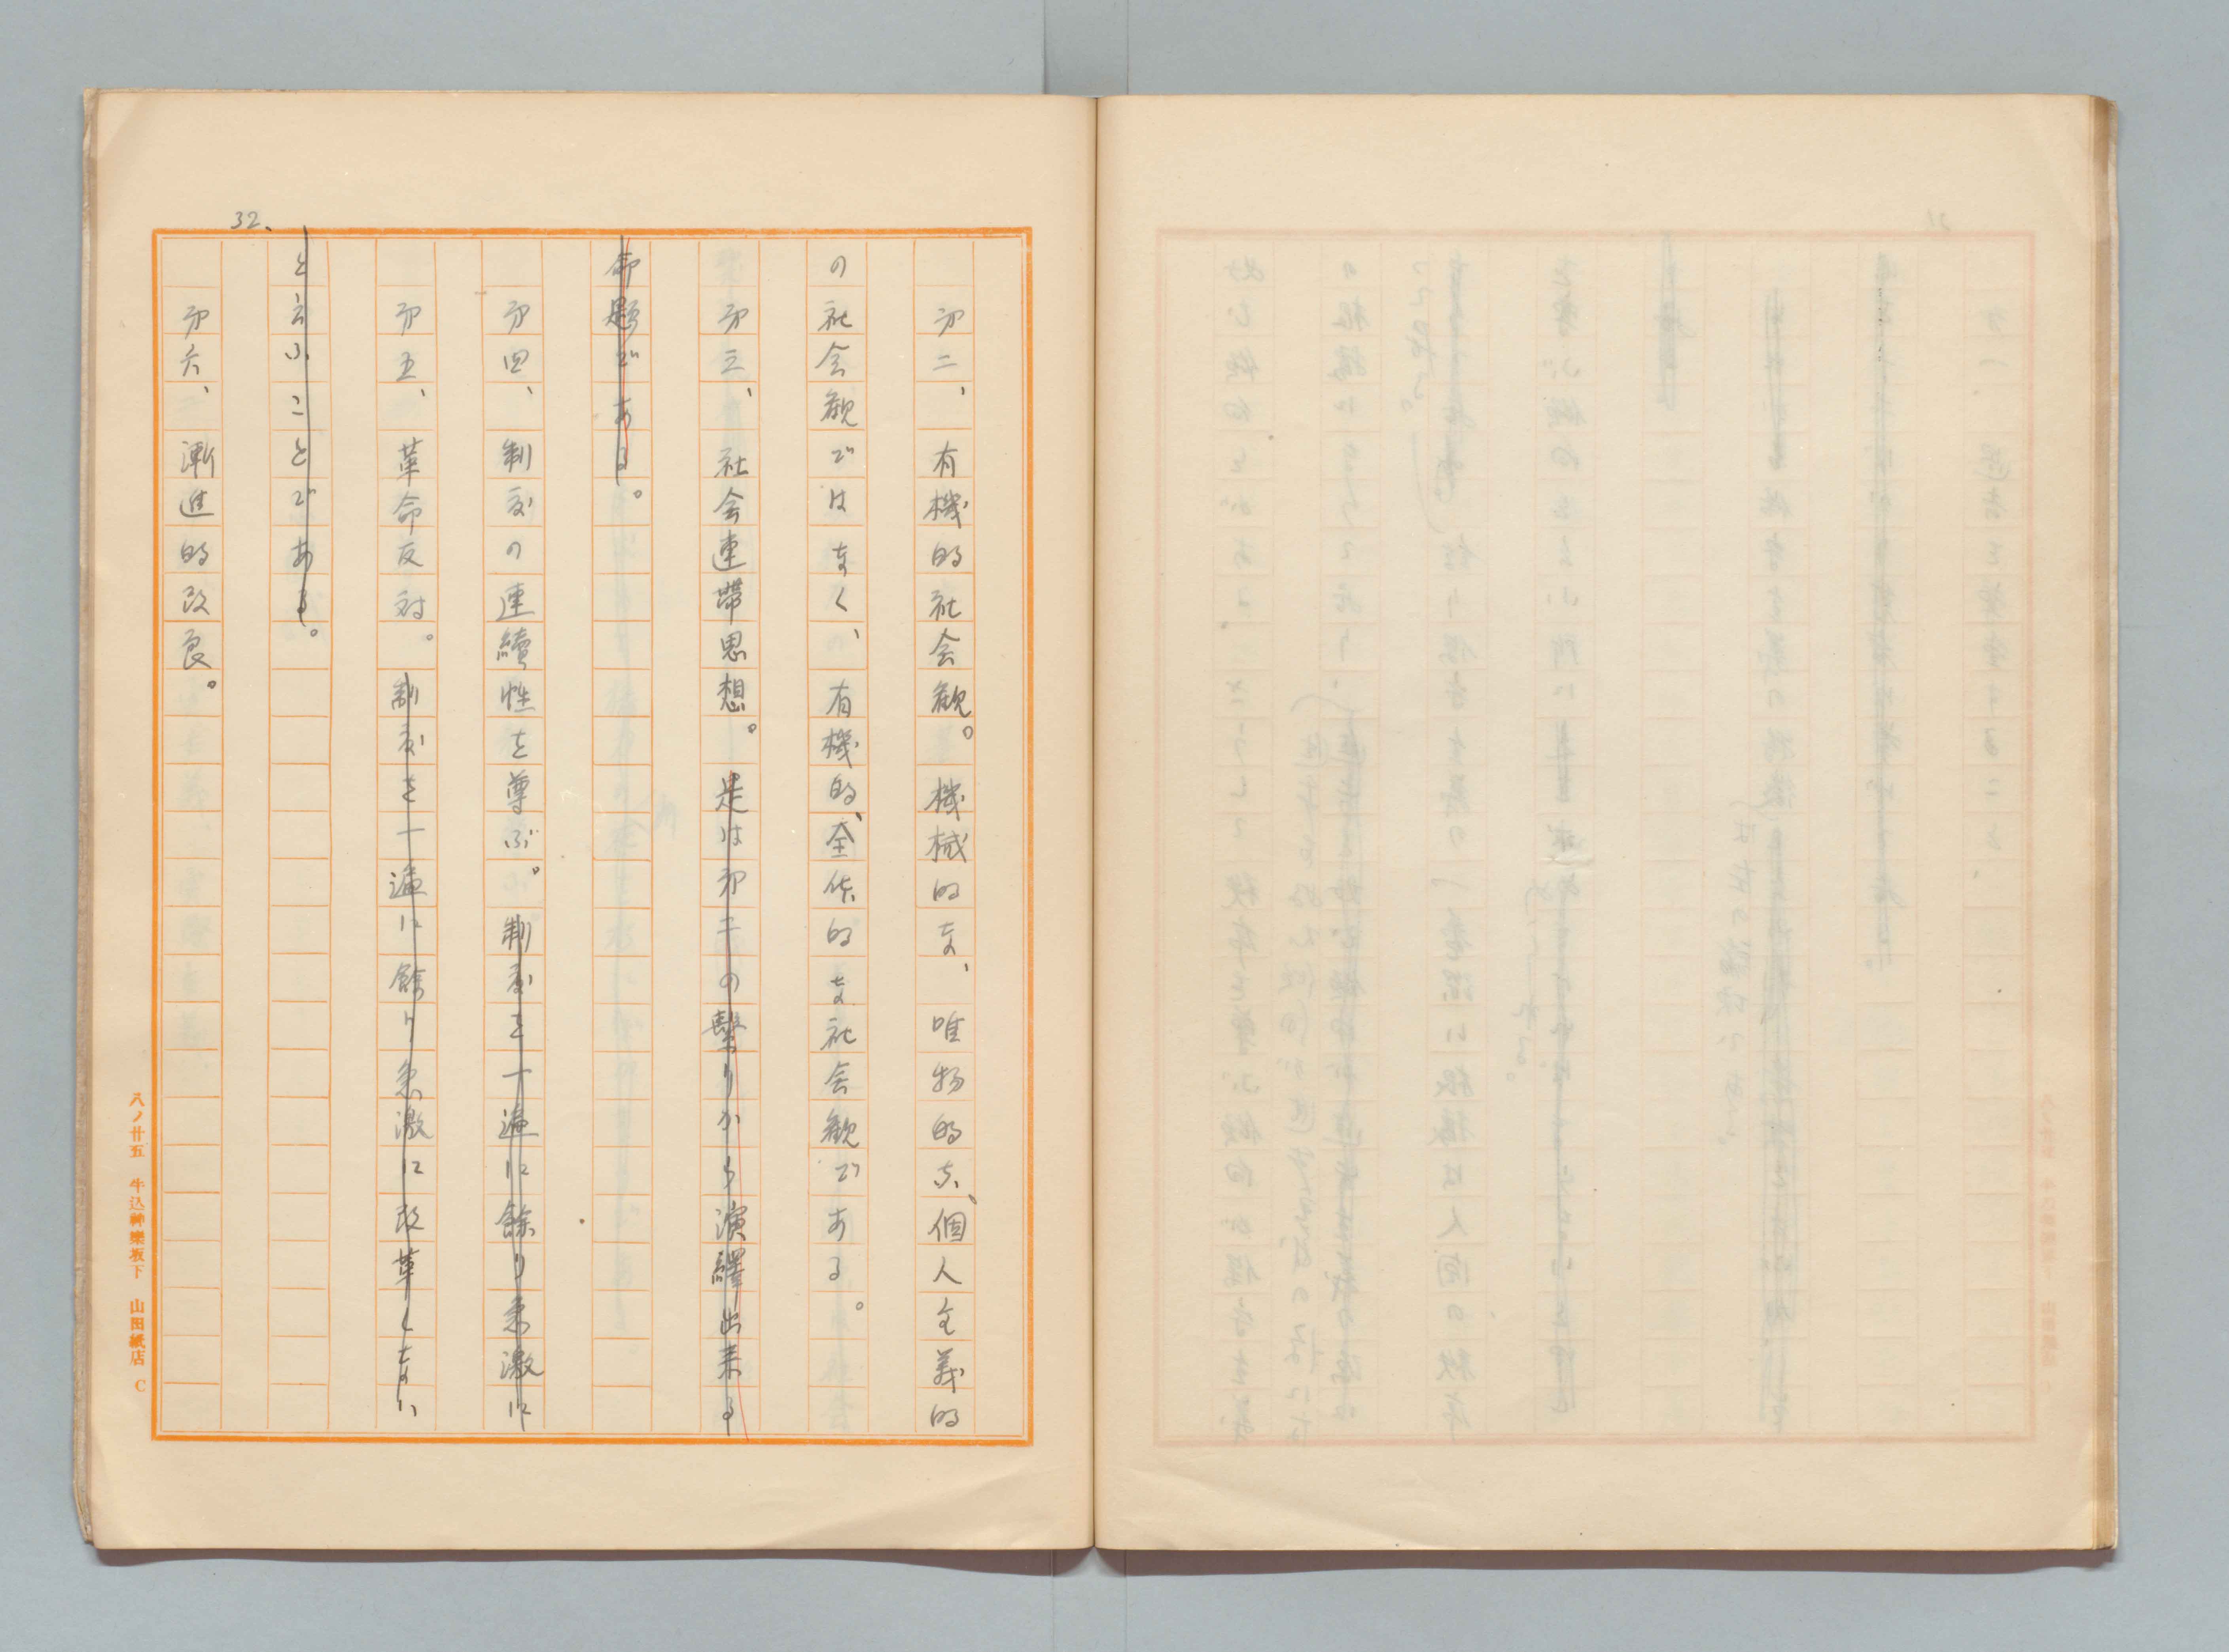 32、
第二、有機的社会観。機械的な、唯物的な、個人主義的
の社会観ではなく、有機的、全体的な社会観である。
第三、社会連帯思想。是は第二の繋りから演繹出来る
命題である。
第四、制度の連續性を尊ぶ。制度を一遍に餘り急激に
第五、革命反対。制度を一遍に餘り急激に改革しない
と云ふことである。
第六、漸進的改良。
八ノ廿五 牛込神樂坂下 山田紙店 C